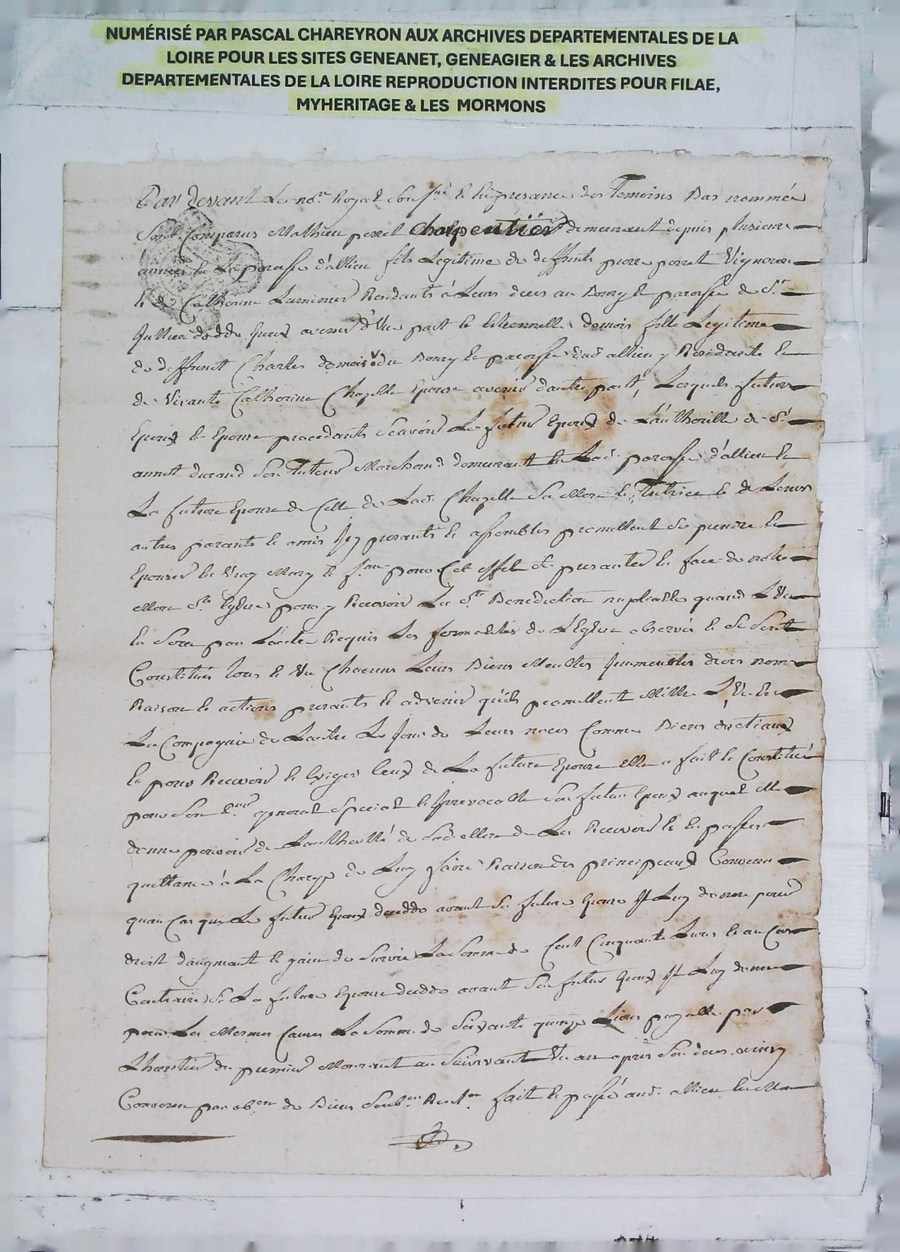 NUMÉRISÉ PAR PASCAL CHAREYRON AUX ARCHIVES DEPARTEMENTALES DE LA
LOIRE POUR LES SITES GENEANET, GENEAGIER & LES ARCHIVES
DEPARTEMENTALES DE LA LOIRE REPRODUCTION INTERDITES POUR FILAE,
MYHERITAGE & LES MORMONS
Par devant Le no.re Royal sous.né & En presance des Temoins Bas nommés
Sont Comparus Mathieu perret Charpentier demeurant depuis plusieurs
années La paroisse d'allieu fils Legitime de deffunts pierre perret Vigneron
& de Catherine Residants à Leurs deces au Bourg & paroisse de St
d'Une part & Etiennette demois fille Legitime
de deffunt Charles demois du Bourg & paroisse dud allieu y Residante &
de Vivante Catherine Chapelle Epouse avenir dautre part, Lesquels futurs
Epoux & Epouse procedants Scavoir Le futur Epoux de L'authorité de Sr
annet durand Son Tuteur Marchand demeurant paroisse d'allieu &
La future Epouse de Celle de Lad. Chapelle Sa Mere & Tutrice & de Leurs
autres parants & amis Icy presants & assemblés promettent Se prendre &
Epouser En Vray Mary & fme pour Cet effet Se presanter En face de notre
Mere Ste Eglise pour y Recevoir La Ste Benediction nuptialle quand L'Un
En Sera par Lautre Requis Les formalités de L'Eglise observés & Se Sont
Constitués tous & Un Chacuns Leurs Biens Meubles Immeubles droits noms
Raison & actions presants & advenir quils promettent
La Compagnie de Lautre Le Jour de Leurs noces Comme Biens dotiaux
Et pour Recevoir & Exiger Ceux de La future Epouse Elle a fait & Constitué
pour Son general Special & Irrevocable Son futur Epoux auquel Elle
donne pouvoir de Lauthorité de Sad Mere de Les Recevoir & En passer
quittance à La Charge de Luy faire Raison des principeaux Convenu
quan Cas que Le futur Epoux decede avant Sa future Epouse Il Luy donne pour
droit daugmant & gain de Survie La Somme de Cent Cinquante Livres & au Cas
Contraire Si La future Epouse decede avant Son futur Epoux Luy donne
pour Les Mesmes Causes La Somme de Soixante quinze Livres payable par
Lheritier du premier Mourant au Survivant Un an après Son deces ainsy
Convenu par de Biens fait & passé aud. allieu